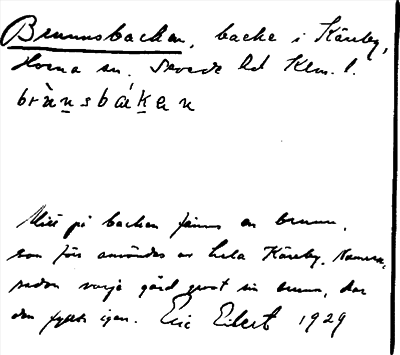 Brunnsbacken, backe i Käreby,
sn. Sevede hd Klm. l.
brùnsbákan
Mitt på backen finns en brunn,
som förr användes av hela Käreby. Numera,
sedan varje gård grävt sin brunn, har
den fyllts igen. Eric Eilert 1929